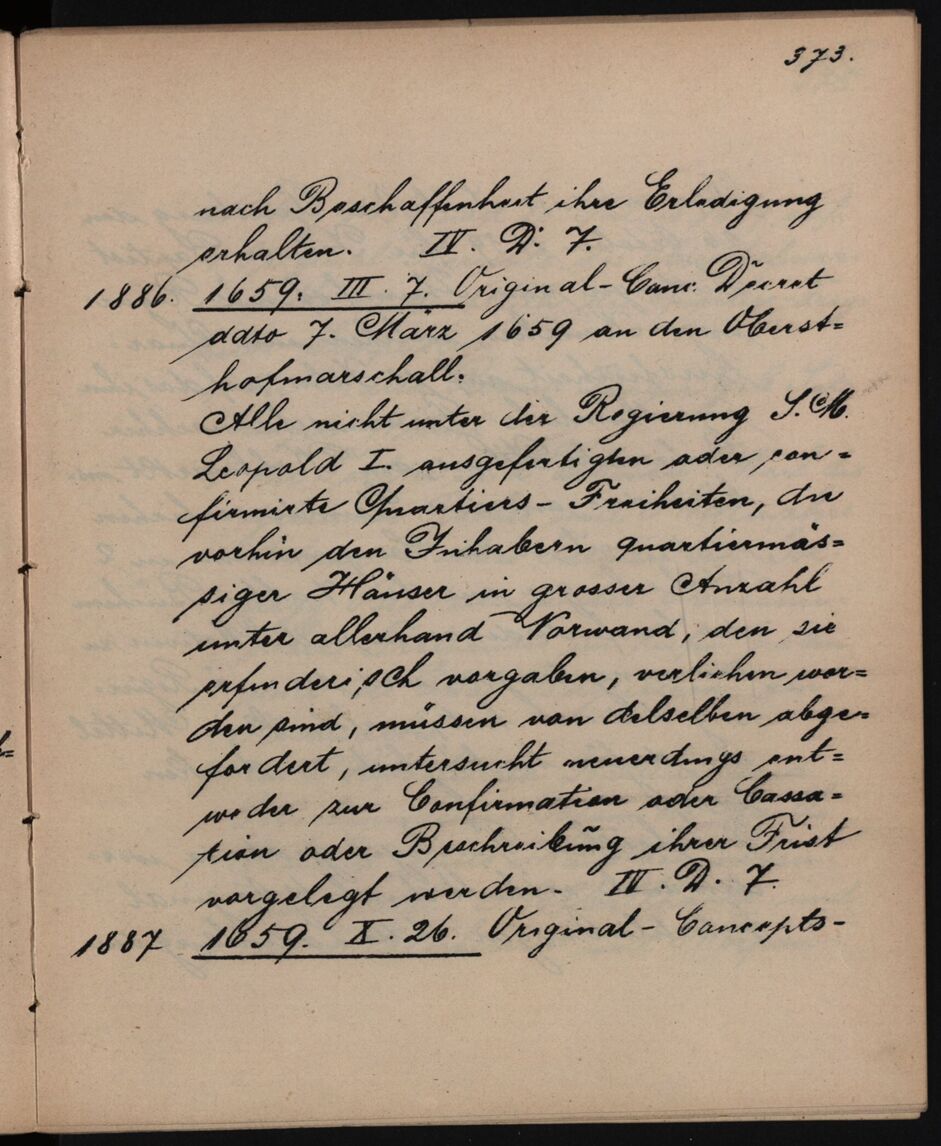 373.
nach Beschaffenheit ihre Erledigung
erhalten. IV. D. 7.
1886. 1659. III. 7. Original-Canc. Decret
ddto 7. März 1659 an den Oberst=
hofmarschall.
Alle nicht unter der Regierung S. M.
Leopold I. ausgefertigten oder con=
firmirte Quartiers-Freiheiten, die
vorhin den Inhabern quartiermäs=
siger Häuser in grosser Anzahl
unter allerhand Vorwand, den sie
erfinderisch vorgaben, verliehen wor=
den sind, müssen von delselben abge=
fordert, untersucht neuerdings ent=
weder zur Confirmation oder Cassa=
tion oder Beschreibung ihrer Frist
vorgelegt werden. IV. D. 7.
1887 1659. X. 26. Original-Concepts-